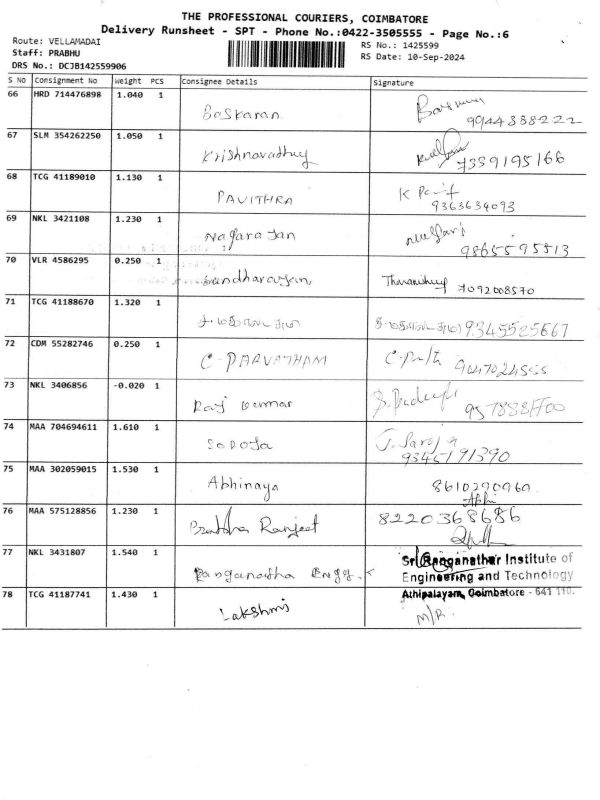 THE PROFESSIONAL COURIERS, COIMBATORE
Delivery Runsheet - SPT - Phone No.:0422-3505555 - Page No.:6
Route: VELLAMADAI
Staff: PRABHU
DRS No.: DCJB142559906
RS No.: 1425599
RS Date: 10-Sep-2024
S No Consignment No Weight PCS Consignee Details Signature
66 HRD 714476898 1.040 1 Baskaran
67 SLM 354262250 1.050 1 7359195166
68 TCG 41189010 1.130 1 PAVITHRA K
9363634093
69 NKL 3421108 1.230 1 Nagarajan
9865595513
70 VLR 4586295 0.250 1 7092008570
71 TCG 41188670 1.320 1 9345525667
72 CDM 55282746 0.250 1 C. PARVATHAM
73 NKL 3406856 -0.020 1 Raj Kumar
74 MAA 704694611 1.610 1 SAROJA J. Saroja
9345191390
75 MAA 302059015 1.530 1 Abhinaya 8610290960
Abhi
76 MAA 575128856 1.230 1 Ranjeet 8220368686
77 NKL 3431807 1.540 1 Ranganatha Engg. Sri Ranganathar Institute of
Engineering and Technology
Athipalayam, Coimbatore - 641 110.
78 TCG 41187741 1.430 1 Lakshmi M/R.